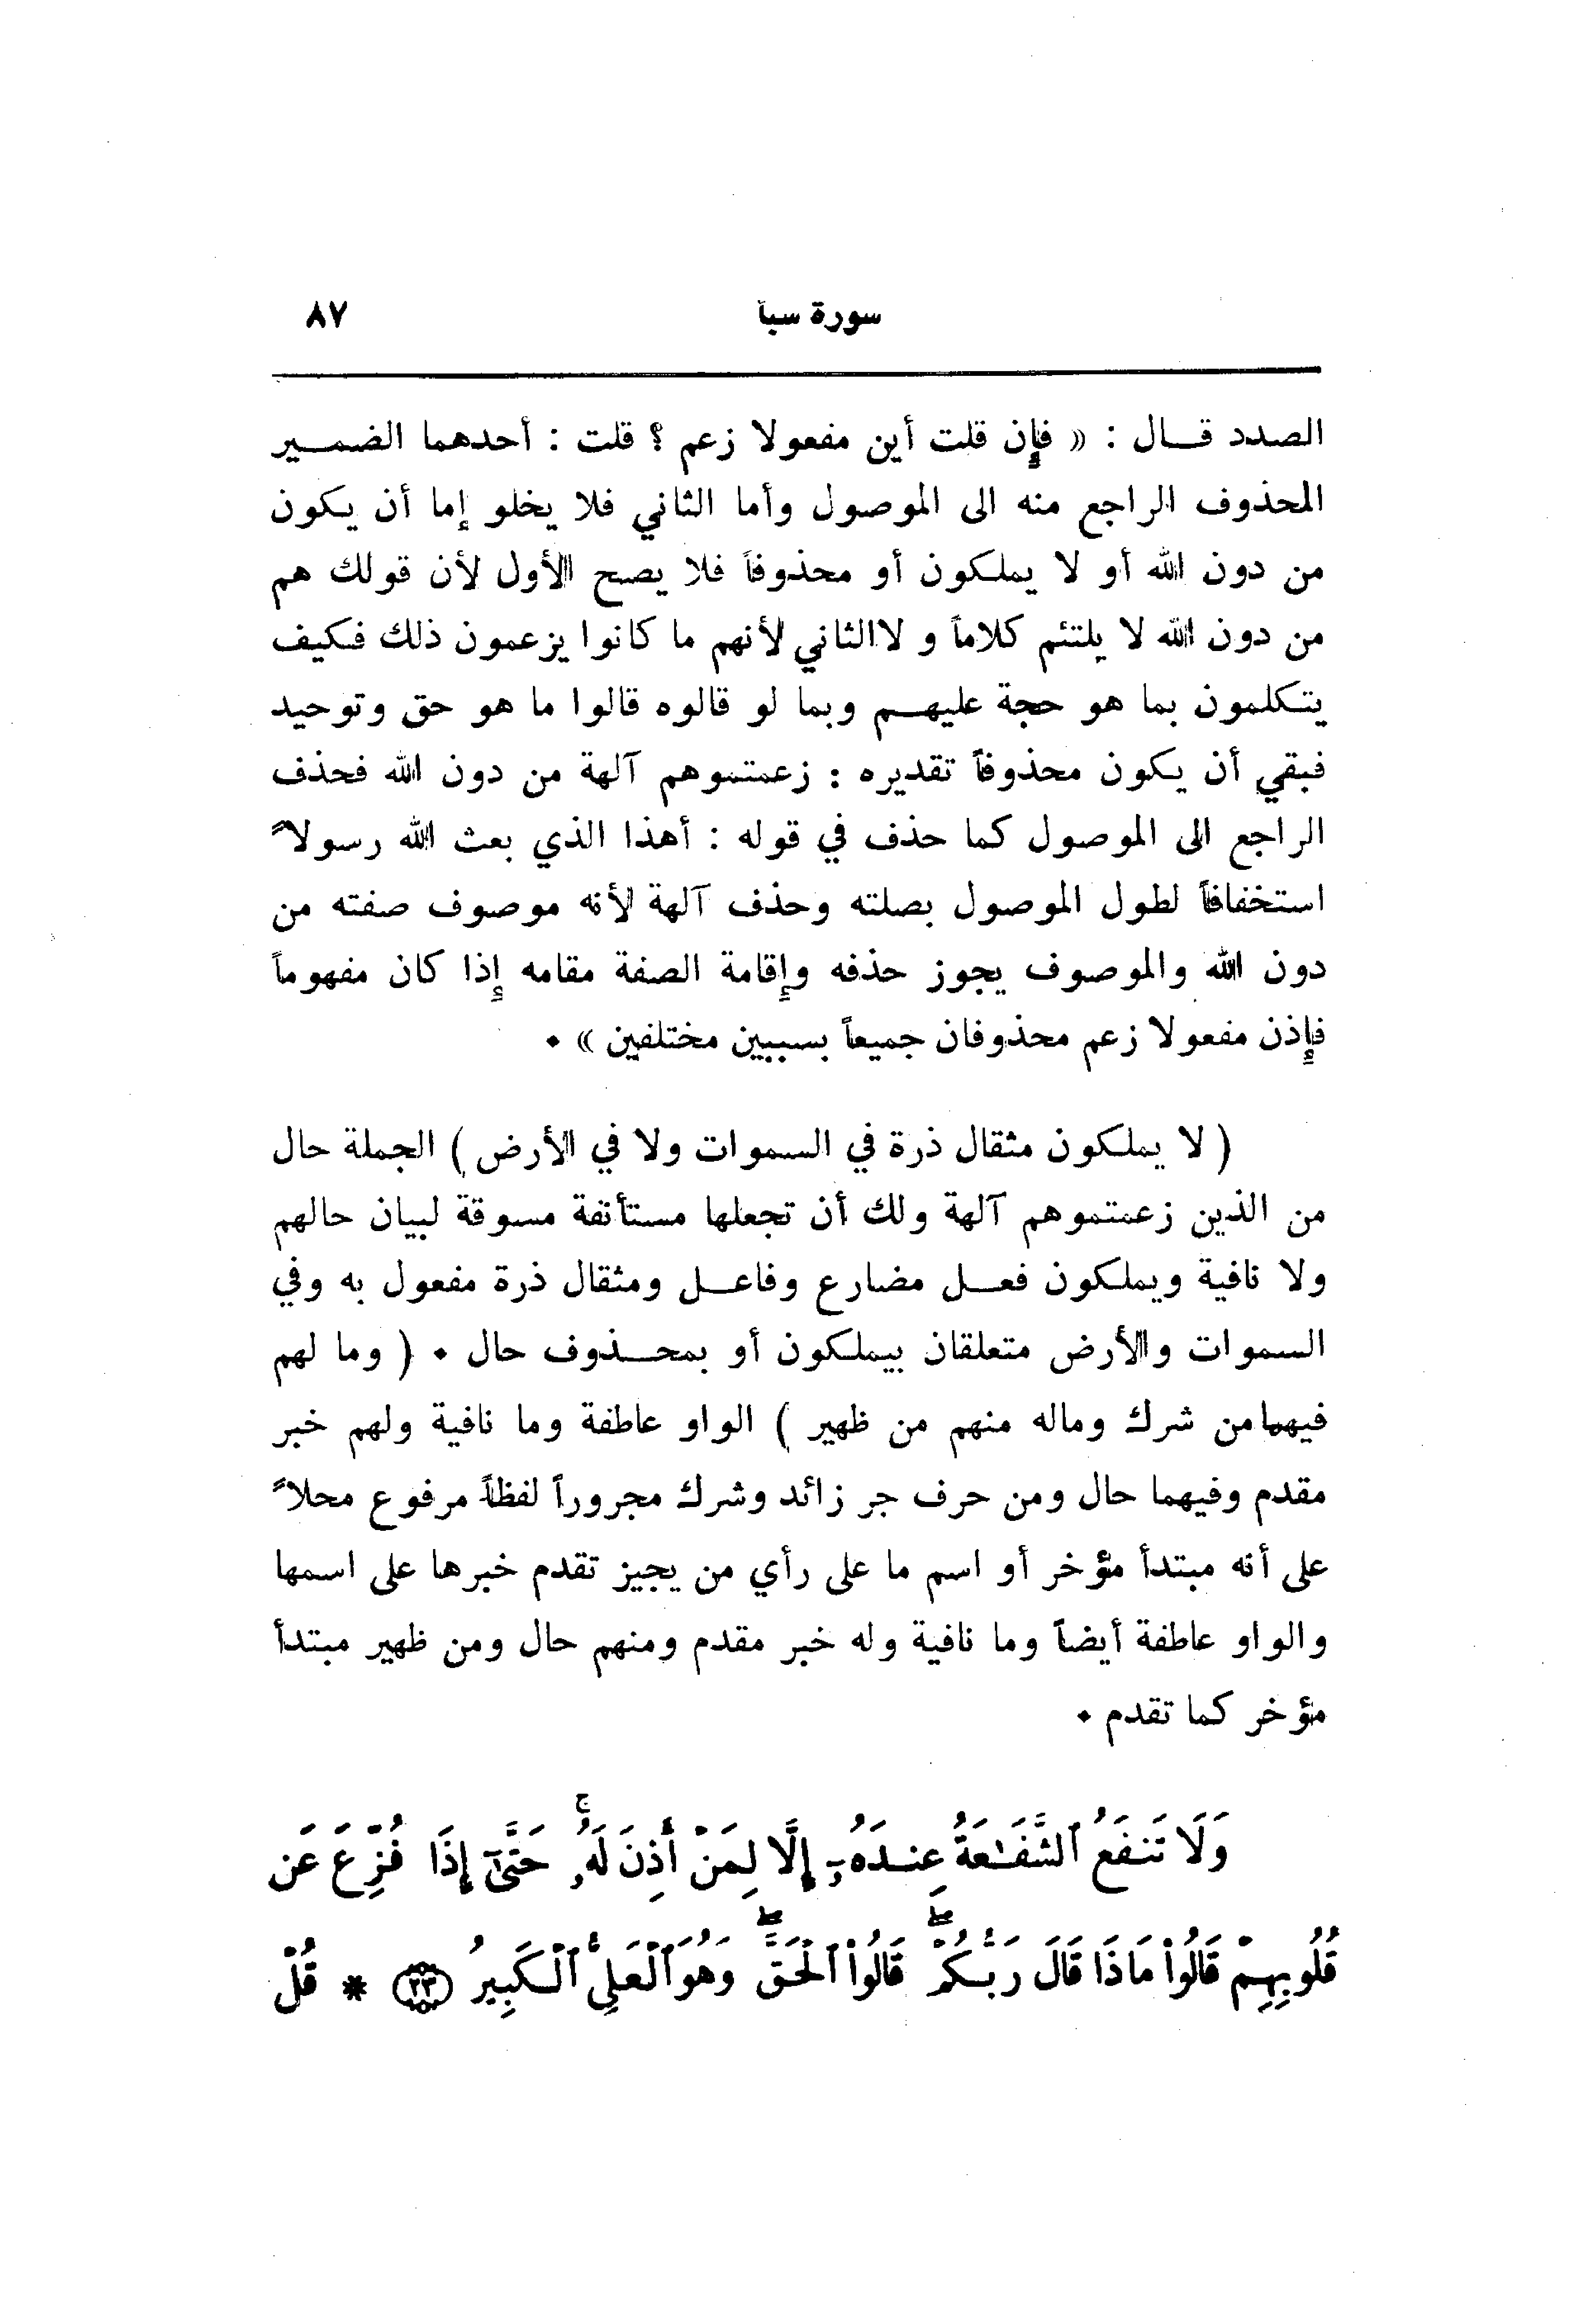 سورة سبأ ٨٧
الصدد قــال : « فإن قلت أين مفعولا زعم ؟ قلت : أحدهما الضمــير
المحذوف الراجع منه الى الموصول وأما الثاني فلا يخلو إما أن يكون
من دون الله أو لا يملكون أو محذوفاً فلا يصح الأول لأن قولك هم
من دون الله لا يلتئم كلاماً و لاالثاني لأنهم ما كانوا يزعمون ذلك فكيف
يتكلمون بما هو حجة عليهــم وبما لو قالوه قالوا ما هو حق وتوحيد
فبقي أن يكون محذوفاً تقديره : زعمتموهم آلهة من دون الله فحذف
الراجع الى الموصول كما حذف في قوله : أهذا الذي بعث الله رسولاً
استخفافاً لطول الموصول بصلته وحذف آلهة لأنه موصوف صفته من
دون الله والموصوف يجوز حذفه وإقامة الصفة مقامه إذا كان مفهوماً
فإذن مفعولا زعم محذوفان جميعاً بسببين مختلفين » ٠
( لا يملكون مثقال ذرة في السموات ولا في الأرض ) الجملة حال
من الذين زعمتموهم آلهة ولك أن تجعلها مستأنفة مسوقة لبيان حالهم
ولا نافية ويملكون فعــل مضارع وفاعــل ومثقال ذرة مفعول به وفي
السموات والأرض متعلقان بيملكون أو بمحــذوف حال ٠ ( وما لهم
فيهمامن شرك وماله منهم من ظهير ) الواو عاطفة وما نافية ولهم خبر
مقدم وفيهما حال ومن حرف جر زائد وشرك مجروراً لفظاً مرفوع محلاً
على أنه مبتدأ مؤخر أو اسم ما على رأي من يجيز تقدم خبرها على اسمها
والواو عاطفة أيضاً وما نافية وله خبر مقدم ومنهم حال ومن ظهير مبتدأ
مؤخر كما تقدم ٠
وَلَا تَنفَعُ ٱلشَّفَـٰعَةُ عِندَهُۥٓ إِلَّا لِمَنْ أَذِنَ لَهُۥۚ حَتَّىٰٓ إِذَا فُزِّعَ عَن
قُلُوبِهِمْ قَالُواْ مَاذَا قَالَ رَبُّكُمْۖ قَالُواْ ٱلْحَقَّۖ وَهُوَ ٱلْعَلِىُّ ٱلْكَبِيرُ ﴿٢٣﴾ * قُلْ